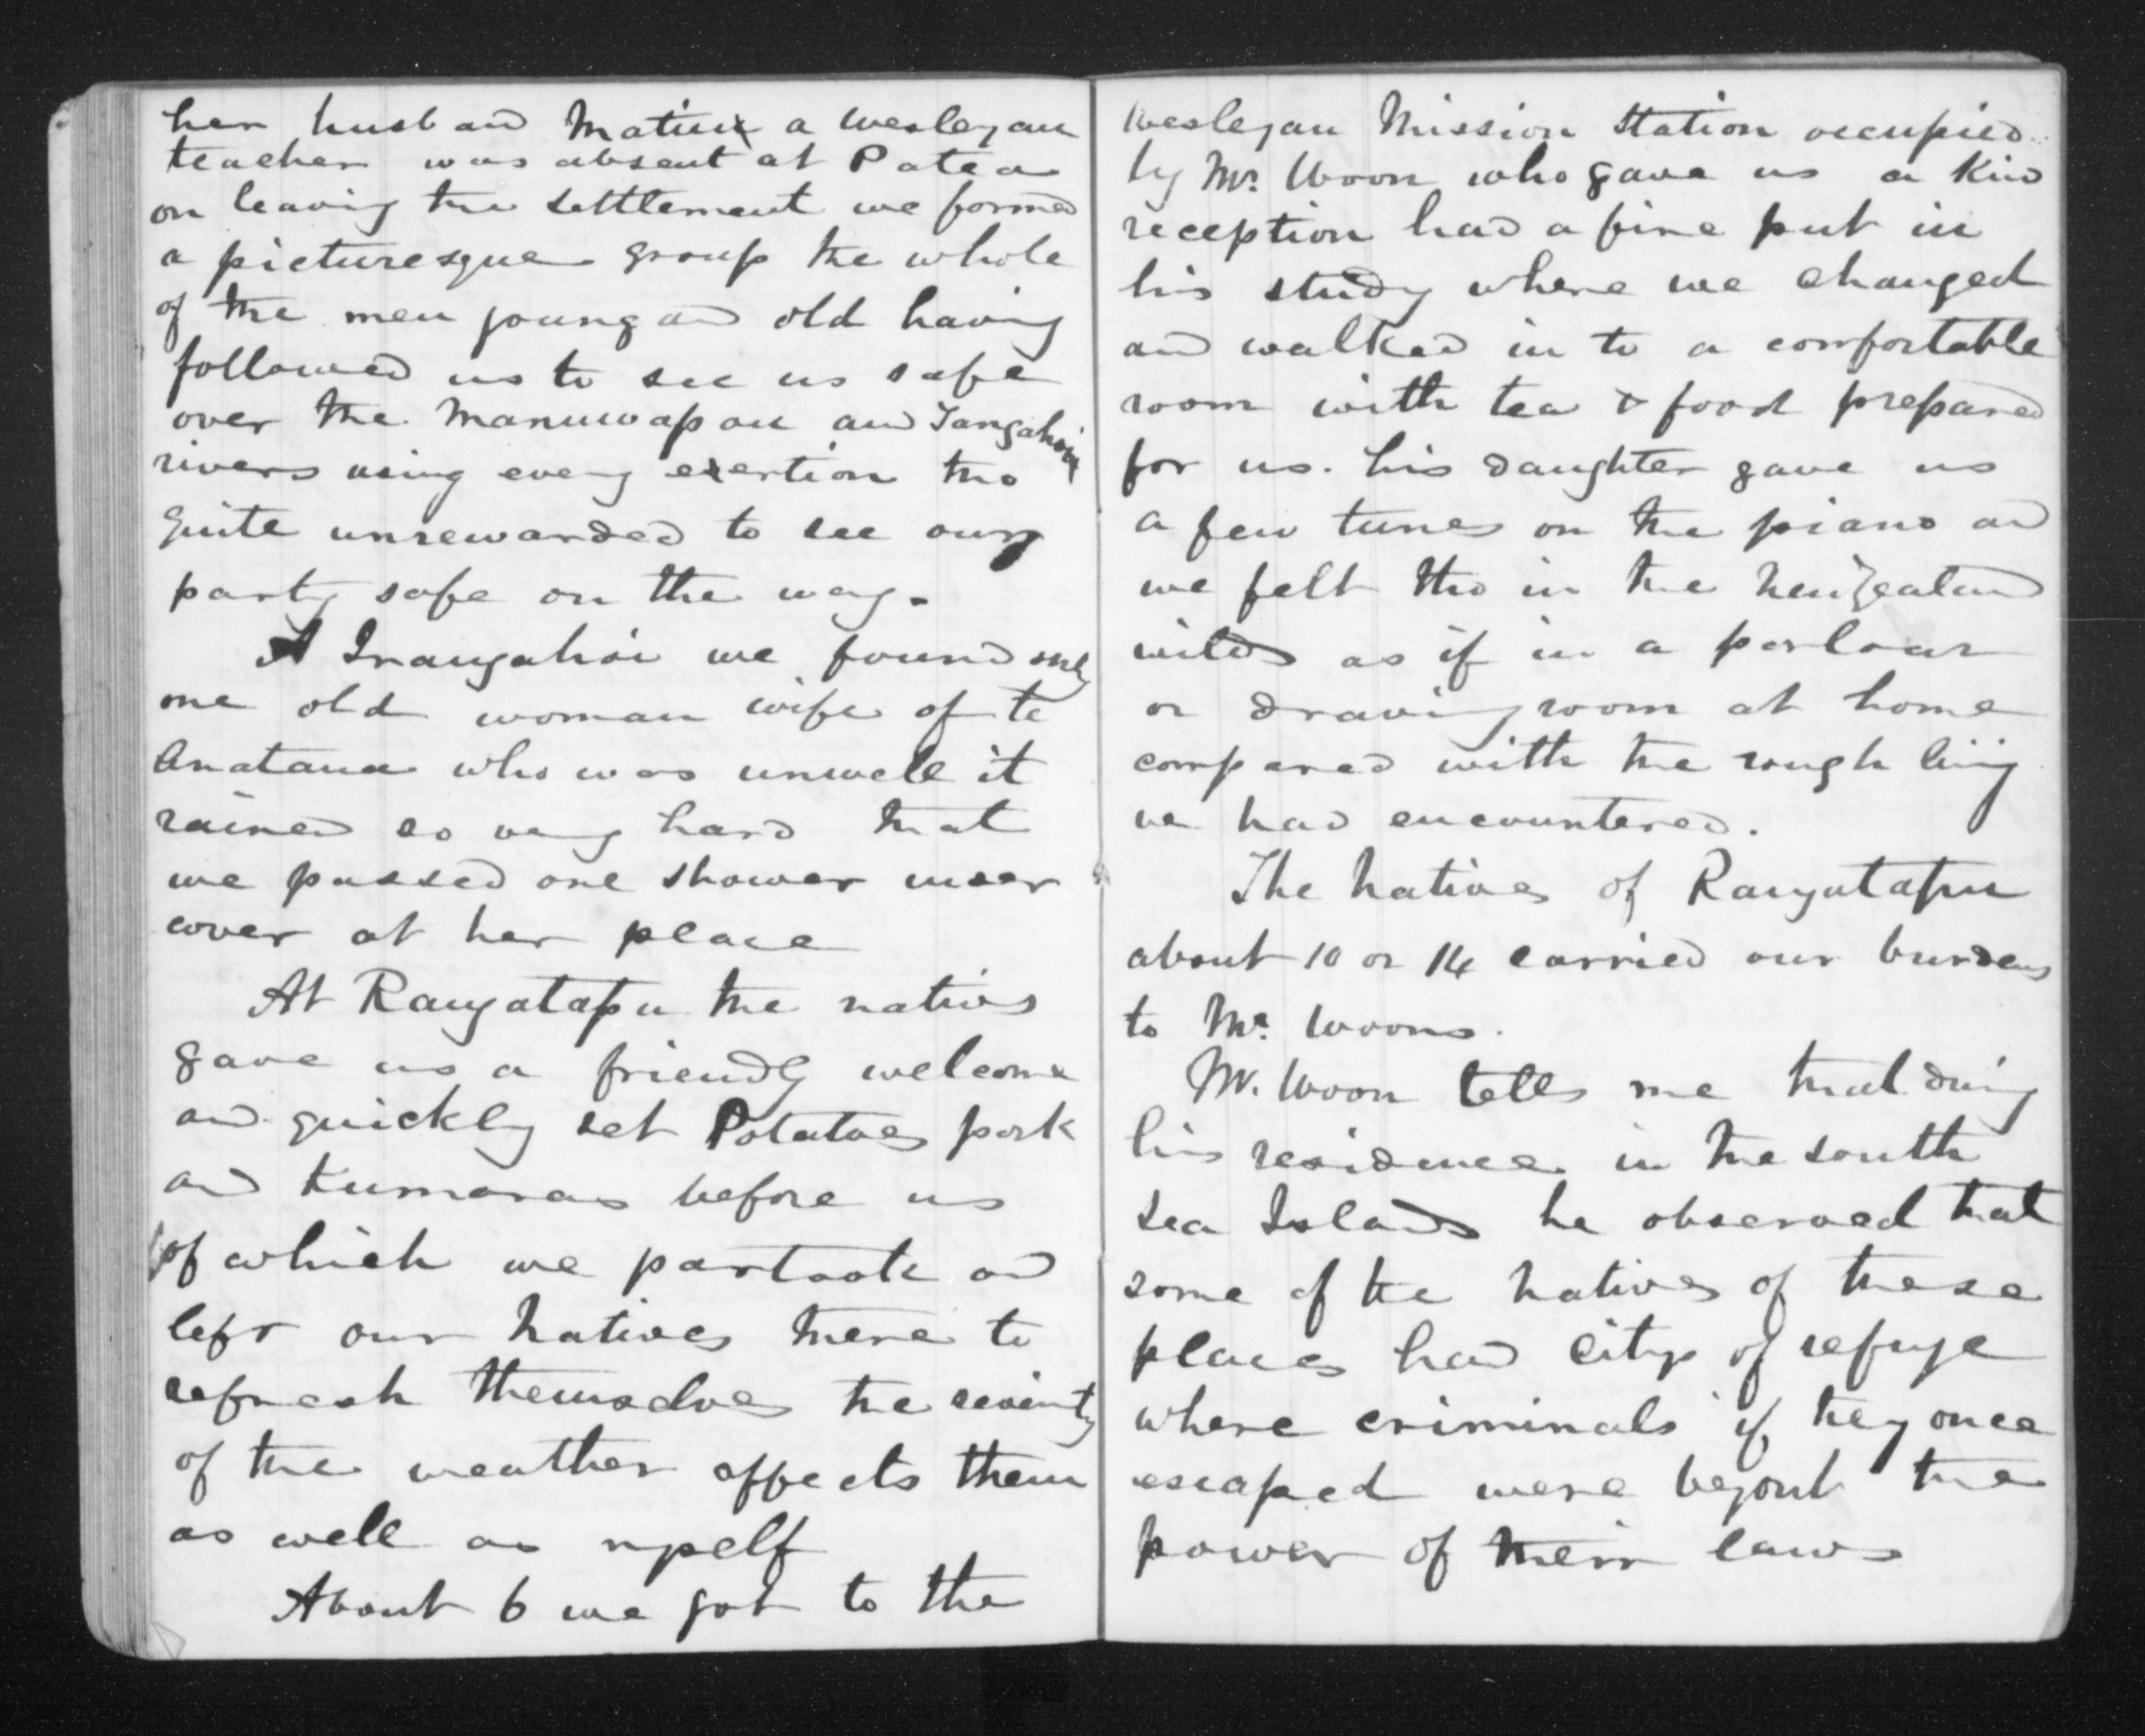 her husband Matiu a Wesleyan
teacher was absent at Patea
on leaving the settlement we formed
a picturesque group the whole
of the men young and old having
followed us to see us safe
over the Manuwapou and Tangahoi
rivers using every exertion tho
quite unrewarded to see our
party safe on the way.
A Inangahoi we found only
one old woman wife of te
Anatana who was unwell it
rained so very hard that
we passed one shower under
cover at her place
At Rangatapu the natives
gave us a friendly welcome
and quickly set Potatoes pork
and Kumaras before us
of which we partook and
left our Natives there to
refresh themselves the severity
of the weather affects them
as well as myself
About 6 we got to the
Wesleyan Mission Station occupied
by Mr. Woon who gave us a kind
reception had a fire put in
his study where we changed
and walked in to a comfortable
room with tea & food prepared
for us. his daughter gave us
a few tunes on the piano and
we felt tho in the New Zealand
wilds as if in a parlour
or drawing room at home
compared with the rough living
we had encountered.
The Natives of Rangatapu
about 10 or 14 carried our burdens
to Mr. Woons.
Mr. Woon tells me that during
his residence in the South
Sea Islands he observed that
some of the Natives of these
places had citys of refuge
where criminals if they once
escaped were beyond the
power of their laws